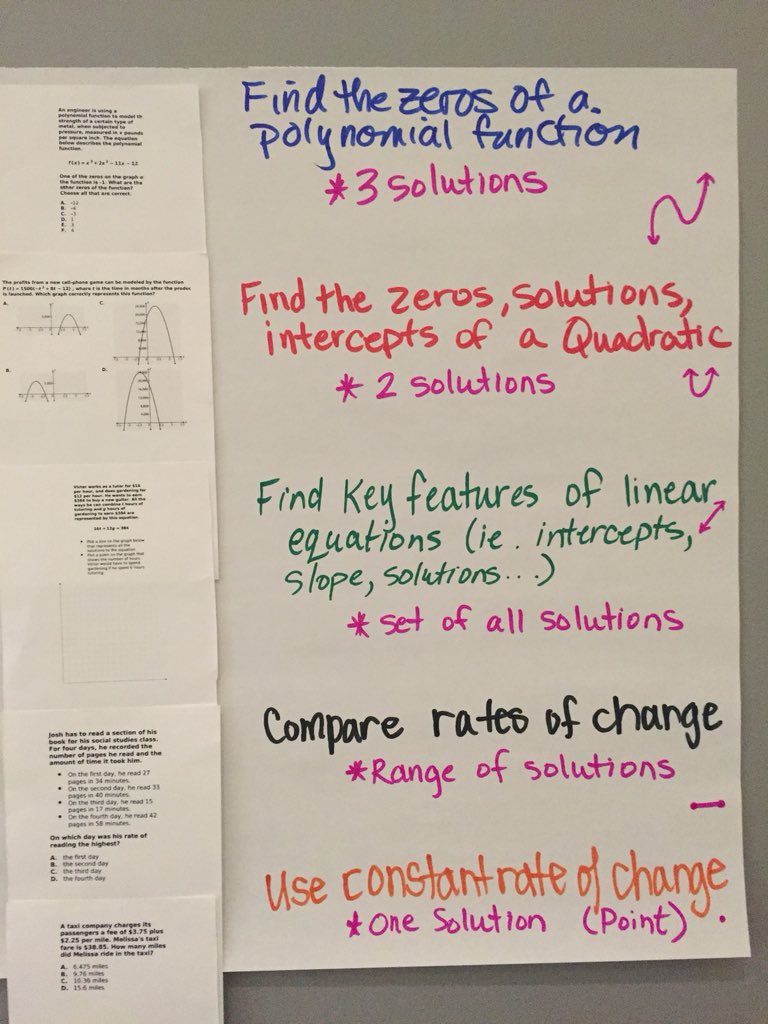 An engineer is using a
polynomial function to model th
strength of a certain type of
metal, when subjected to
pressure, measured in x pounds
per square inch. The equation
below describes the polynomial
function.
f(x) = x³ + 2x² − 11x − 12
One of the zeros on the graph o
the function is -1. What are the
other zeros of the function?
Choose all that are correct.
A. -12
B. -4
C. -3
D. 1
E. 3
F. 4
Find the zeros of a
polynomial function
*3 solutions
The profits from a new cell-phone game can be modeled by the function
P(t) = 1500(−t² + 8t − 12), where t is the time in months after the produc
is launched. Which graph correctly represents this function?
A.
C.
B.
D.
Find the zeros, solutions,
intercepts of a Quadratic
* 2 solutions
Victor works as a tutor for $16
per hour, and does gardening for
$12 per hour. He wants to earn
$384 to buy a new guitar. All the
ways he can combine t hours of
tutoring and g hours of
gardening to earn $384 are
represented by this equation.
16t + 12g = 384
• Plot a line on the graph below
that represents all the
solutions to the equation.
• Plot a point on the graph that
shows the number of hours
Victor would have to spend
gardening if he spent 6 hours
tutoring.
Find Key features of linear
equations (ie. intercepts,
slope, solutions...)
* set of all solutions
Josh has to read a section of his
book for his social studies class.
For four days, he recorded the
number of pages he read and the
amount of time it took him.
• On the first day, he read 27
pages in 34 minutes.
• On the second day, he read 33
pages in 40 minutes.
• On the third day, he read 15
pages in 17 minutes.
• On the fourth day, he read 42
pages in 58 minutes.
On which day was his rate of
reading the highest?
A. the first day
B. the second day
C. the third day
D. the fourth day
Compare rates of change
*Range of solutions
Use constant rate of change
*One Solution (Point)
A taxi company charges its
passengers a fee of $3.75 plus
$2.25 per mile. Melissa's taxi
fare is $38.85. How many miles
did Melissa ride in the taxi?
A. 6.475 miles
B. 9.76 miles
C. 10.36 miles
D. 15.6 miles